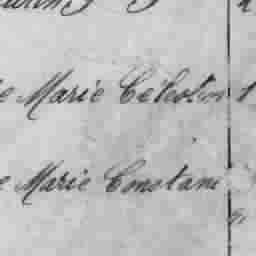 e Marie Celestin
e Marie Constanc